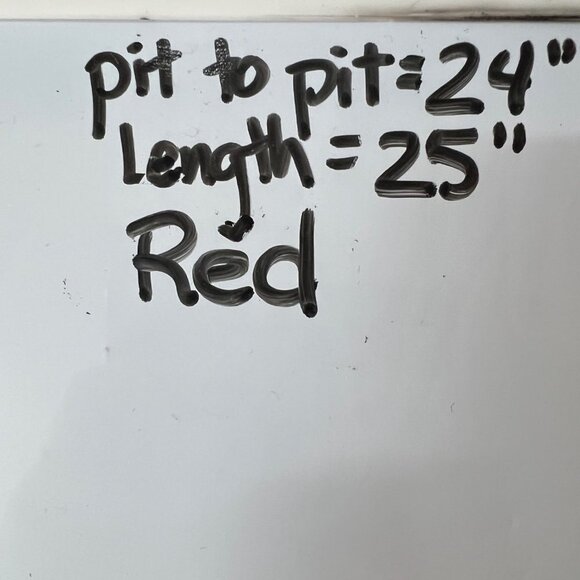 pit to pit = 24"
Length = 25"
Red